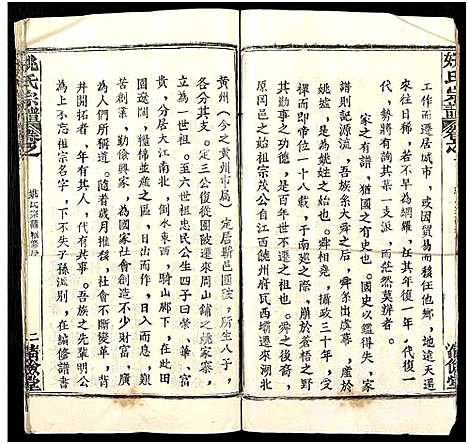 姚氏宗譜
工作而遷居城市，或因貿易而移往他鄉，地遠天遙
，年歲復久，若不早為網羅，一代復一年，年復一
代，後有詢其某一支派，而茫然莫辨者。
家之有譜，猶國之有史也。國史以鑑得失，家
譜則記源流，吾族系大舜之後，舜系出虞幕，虛產於
姚墟，此即是以姚為姓之由來。舜相堯，攝政三十年，受
命於人民，即帝位三十九年，于南巡之際，崩於蒼梧之野
。其豐功偉德，是歷史的首頁功勛。舜之後裔，
歷代之時始祖宗茂公自江西饒州府瓦西壩遷來湖北
原岡邑以
黃州（今之黃州市屬）定居黃邑團陂，所生八子，
各分其支。定三公復從團陂遷來周山鋪之姚家寨，
立為一世祖。至六世祖忠民公生四子曰榮、華、富
、貴，分居大江南北，倒水東西，騎山鄰下，在此田
土遼闊，糧棉並產之區，日出而作，日入而息，艱
苦奮鬥，勤儉興家，為國家社會創造不少財富，廣
為人們所稱道。隨着歲月推移，社會不斷變革，背
井開拓者，年有其人，代有其事。吾族之先輩明公
為上不忘祖宗名字，下不失子孫派別，在編修譜書
姚氏宗譜
姚氏宗譜續修序
二